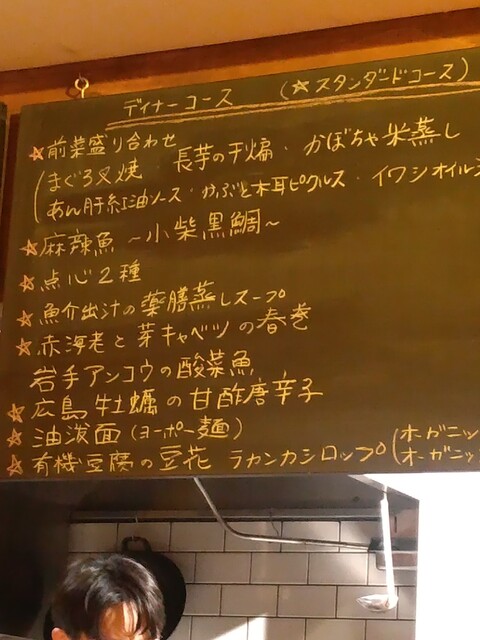 ディナーコース （☆スタンダードコース）
☆前菜盛り合わせ
まぐろ叉焼 長芋の干煸・かぼちゃ米蒸し
あん肝紅油ソース・ ・イワシオイル
☆麻辣魚 ～小柴黒鯛～
☆点心2種
☆魚介出汁の薬膳蒸しスープ
☆赤海老と芽キャベツの春巻
岩手アンコウの酸菜魚
☆広島牡蠣の甘酢唐辛子
☆油泼面（ヨーポー麺）
☆有機豆腐の豆花 ラカンカシロップ（オーガニッ
オーガニッ